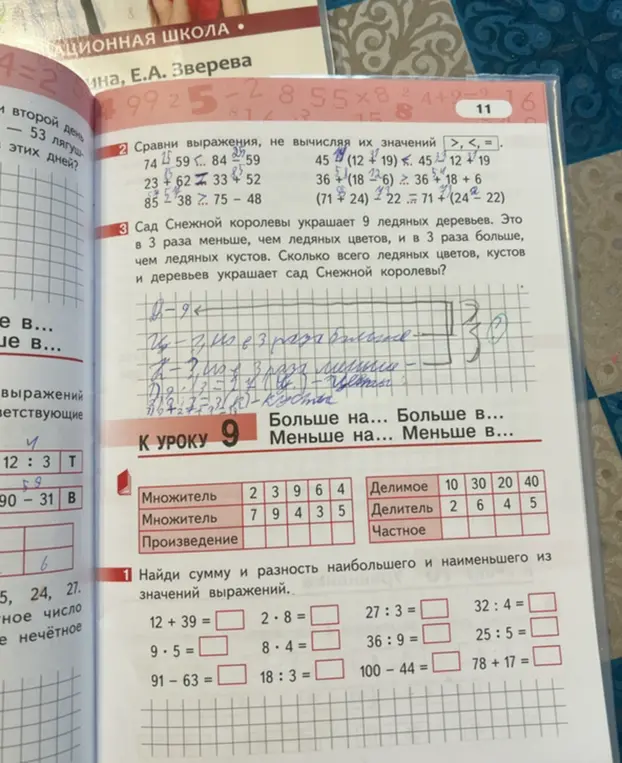 АЦИОННАЯ ШКОЛА •
ина, Е.А. Зверева
4=2
и второй день
— 53 лягуш
этих дней?
е в...
ше в...
выражений
ветствующие
4
12 : 3 Т
59
90 − 31 В
6
5, 24, 27.
ное число
е нечётное
4 99 2 5 − 2 8 55 × 8
11
2 Сравни выражения, не вычисляя их значений >, <, = .
74 − 59 < 84 − 59
45 − (12 + 19) < 45 − 12 + 19
23 + 62 = 33 + 52
36 + (18 − 6) > 36 + 18 + 6
85 − 38 > 75 − 48
(71 + 24) − 22 = 71 + (24 − 22)
3 Сад Снежной королевы украшает 9 ледяных деревьев. Это
в 3 раза меньше, чем ледяных цветов, и в 3 раза больше,
чем ледяных кустов. Сколько всего ледяных цветов, кустов
и деревьев украшает сад Снежной королевы?
Д − 9
Ц − ?, на в 3 раза больше
К − ?, на в 3 раза меньше
цветы
кусты
К УРОКУ 9
Больше на... Больше в...
Меньше на... Меньше в...
Множитель 2 3 9 6 4
Множитель 7 9 4 3 5
Произведение
Делимое 10 30 20 40
Делитель 2 6 4 5
Частное
1 Найди сумму и разность наибольшего и наименьшего из
значений выражений.
12 + 39 = 2 · 8 = 27 : 3 = 32 : 4 =
9 · 5 = 8 · 4 = 36 : 9 = 25 : 5 =
91 − 63 = 18 : 3 = 100 − 44 = 78 + 17 =